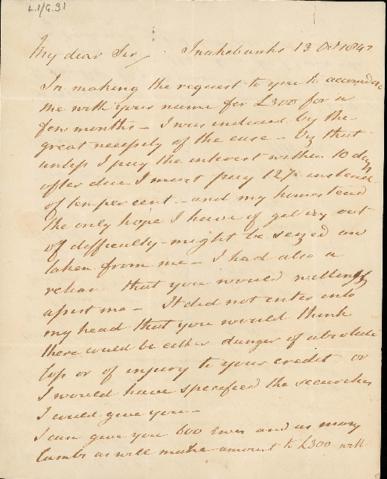 L1/G.31
My dear Sir, Inahebanks 13 Oct 184
In making the request to you to accomodate
me with your name for £300 for a
few months – I was induced by the
great necessity of the case – by that
unless I pay the interest within 10 days
after due I must pay 12 % instead
of ten per cent – and my homestead
the only hope I have of getting out
of difficulty – might be seized and
taken from me – I had also a
that you would willingly
assist me – It did not enter into
my head that you would think
there could be either danger of absolute
loss or of injury to your credit or
I would have specified the securities
I would give you –
I can give you 600 Ewes and as many
lambs as will make amount to £300 with